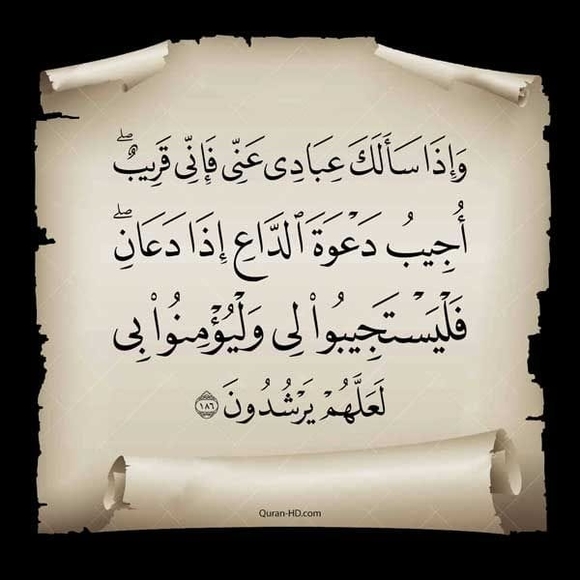 وَإِذَا سَأَلَكَ عِبَادِى عَنِّى فَإِنِّى قَرِيبٌ ۖ
أُجِيبُ دَعْوَةَ ٱلدَّاعِ إِذَا دَعَانِ ۖ
فَلْيَسْتَجِيبُوا۟ لِى وَلْيُؤْمِنُوا۟ بِى
لَعَلَّهُمْ يَرْشُدُونَ ﴿١٨٦﴾
Quran-HD.com